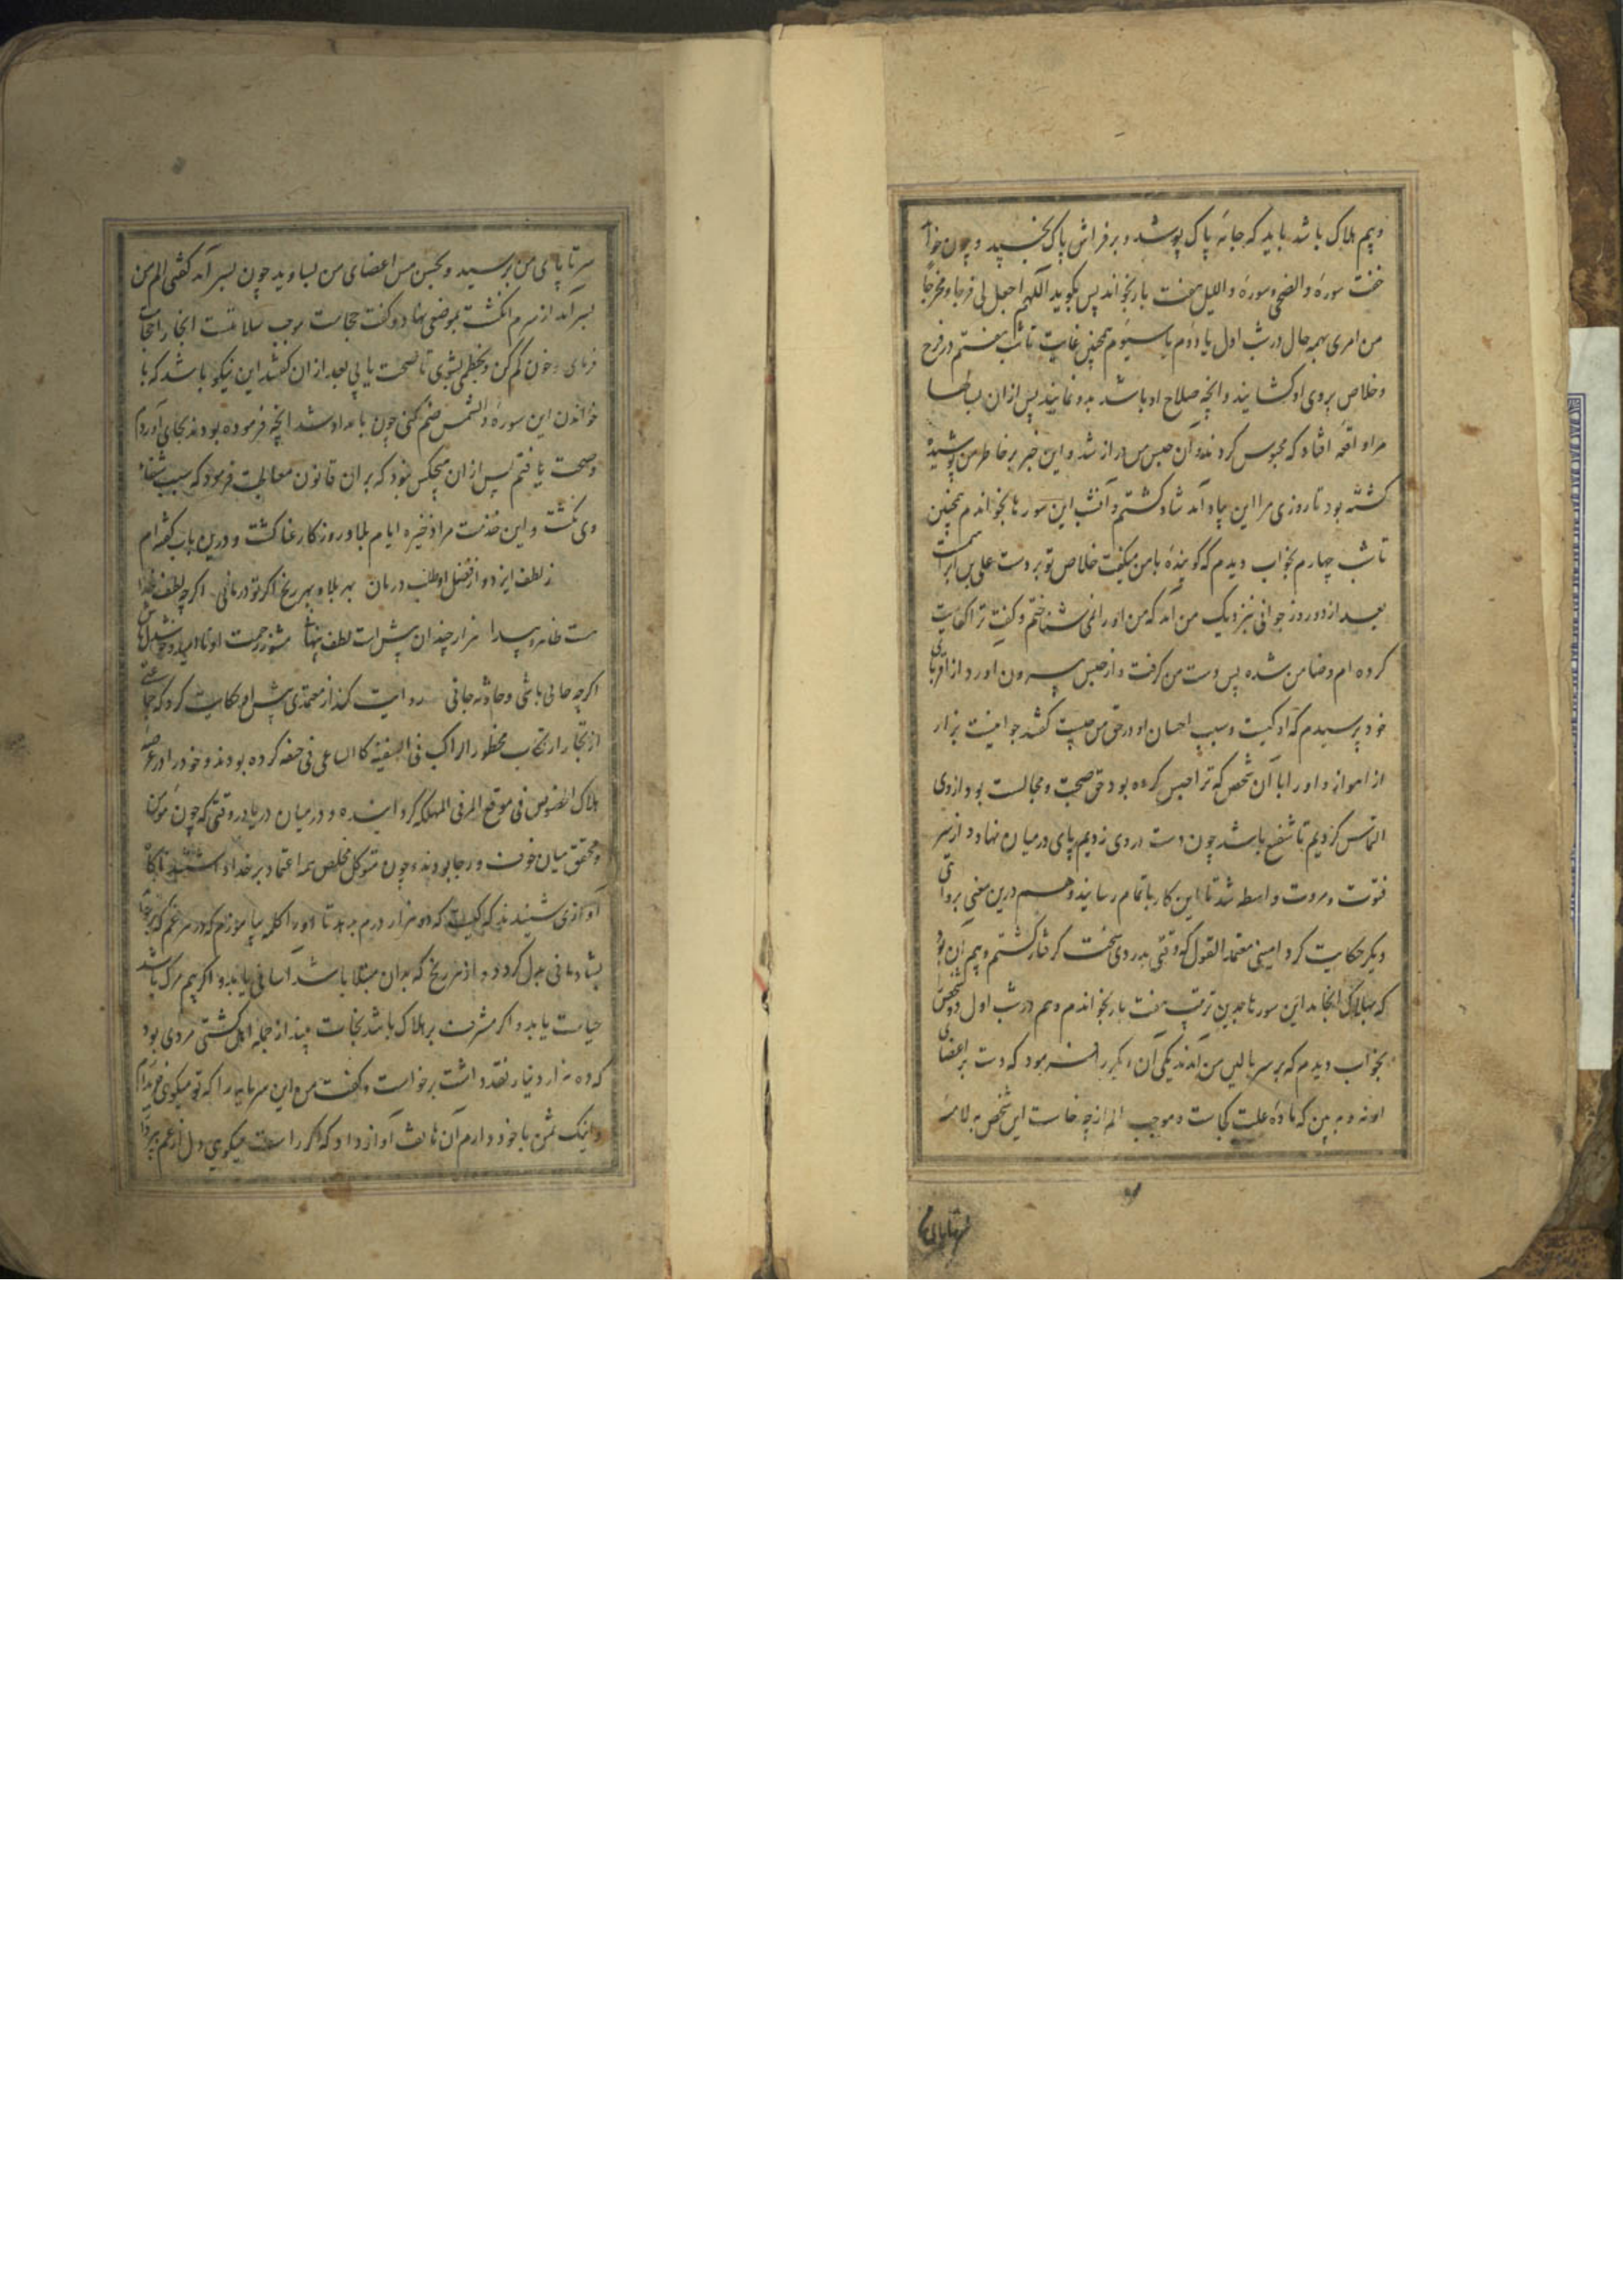 و بیم هلاک باشد باید که جامهٔ پاک پوشد و بر فراش پاک بخسپد و چون خواهد
خفت سورهٔ والضحی و سورهٔ واللیل هفت بار بخواند پس بگوید اللهم اجعل لی فرجا و مخرجا
من امری بهمه حال در شب اول یا دوم یا سیوم همچنین غایت تا شب هفتم در فرج
و خلاص بروی او کشایند و انچه صلاح او باشد بدو نمایند پس از ان
مرا واقعه افتاد که محبوس کردند و آن حبس من دراز شد و این خبر بر خاطر من پوشیده
کشته بود تا روزی مرا این یاد آمد شاد کشتم و آن شب این سورها بخواندم همچنین
تا شب چهارم بخواب دیدم که کویندهٔ با من میکفت خلاص تو بر دست علی بن ابراهیم است
بعد از دو روز جوانی نزدیک من آمد که من او را نمی شناختم و کفت ترا کفایت
کرده ام و ضامن شده پس دست من کرفت و از حبس بیرون اورد و از اقربای
خود پرسیدم که او کیست و سبب احسان او در حق من چیست کفتند جوانیست بزاز
از اهواز و او را با آن شخص که ترا حبس کرده بود حق صحبت و مجالست بود از وی
التماس کردیم تا شفیع باشد چون دست در وی زدیم پای در میان نهاد و از سر
فتوت و مروت واسطه شد تا این کار باتمام رسانید و هم درین معنی بروایتی
دیکر حکایت کرد امینی معتمد القول که وقتی بدردی سخت کرفتار کشتم و بیم آن بود
که بهلاک انجامد این سورتها بدین ترتیب هفت بار بخواندم و هم در شب اول دو شخص
بخواب دیدم که بر سر بالین من آمدند یکی آن دیکر را فرمود که دست بر اعضای
او نه و ببین که مادهٔ علت کجاست و موجب الم از چه خاست این شخص
سر تا پای من برسید و بحس مس اعضای من بساوید چون بسر آمد کفتی الم من
بسر آمد از سرم انکشت بموضعی نهاد و کفت حجامت موجب سلامتست اینجا را حجامت
فرمای و خون کم کن و بخطمی بشوی تا صحت یابی بعد از ان کفتند این نیکو باشد که با
خواندن این سوره والشمس ضم کنی چون بامداد شد انچه فرموده بودند بجای آوردم
و صحت یافتم پس از ان هیچکس نبود که بر ان قانون معالجت فرمود که سبب شفاء
وی نکشت و این خدمت مرا ذخیره ایام بلا و روزکار عنا کشت و درین باب کفته ام
ز لطف ایزد و از فضل او طلب درمان بهر بلا و بهر رنج اکر تو درمانی اکرچه لطف خدا
هست ظاهر و پیدا هزار چندان پیش است لطف پنهانش مشو ز رحمت او ناامید
اکرچه جانی باشی و حادثه جانی روایت کند از معتمدی پیش او حکایت کرد که جماعتی
از تجار ارتکاب محظور الراکب فی السفینة کالساعی فی حتفه کرده بودند و خود را در عرصه
هلاک و در میان دریا در وقتی که چون مومن
محقق میان خوف و رجا بودند و چون متوکل مخلص همه اعتماد بر خدا داشتند
آوازی شنیدند که کیست که ده هزار درم بدهد تا او را کلمهٔ بیاموزم که در هر غم که
بشادمانی بدل کردد و از هر رنج که بدان مبتلا باشد آسانی یابد و اکر بیم مرک باشد
حیات یابد و اکر مشرف بر هلاک باشد نجات بیند از جمله اهل کشتی مردی بود
که ده هزار دینار نقد داشت برخاست و کفت من این سرمایه را که تو میکوئی خریدارم
و اینک ثمن با خود دارم آن هاتف آواز داد که اکر راست میکویی دل از غم
سر تا پای